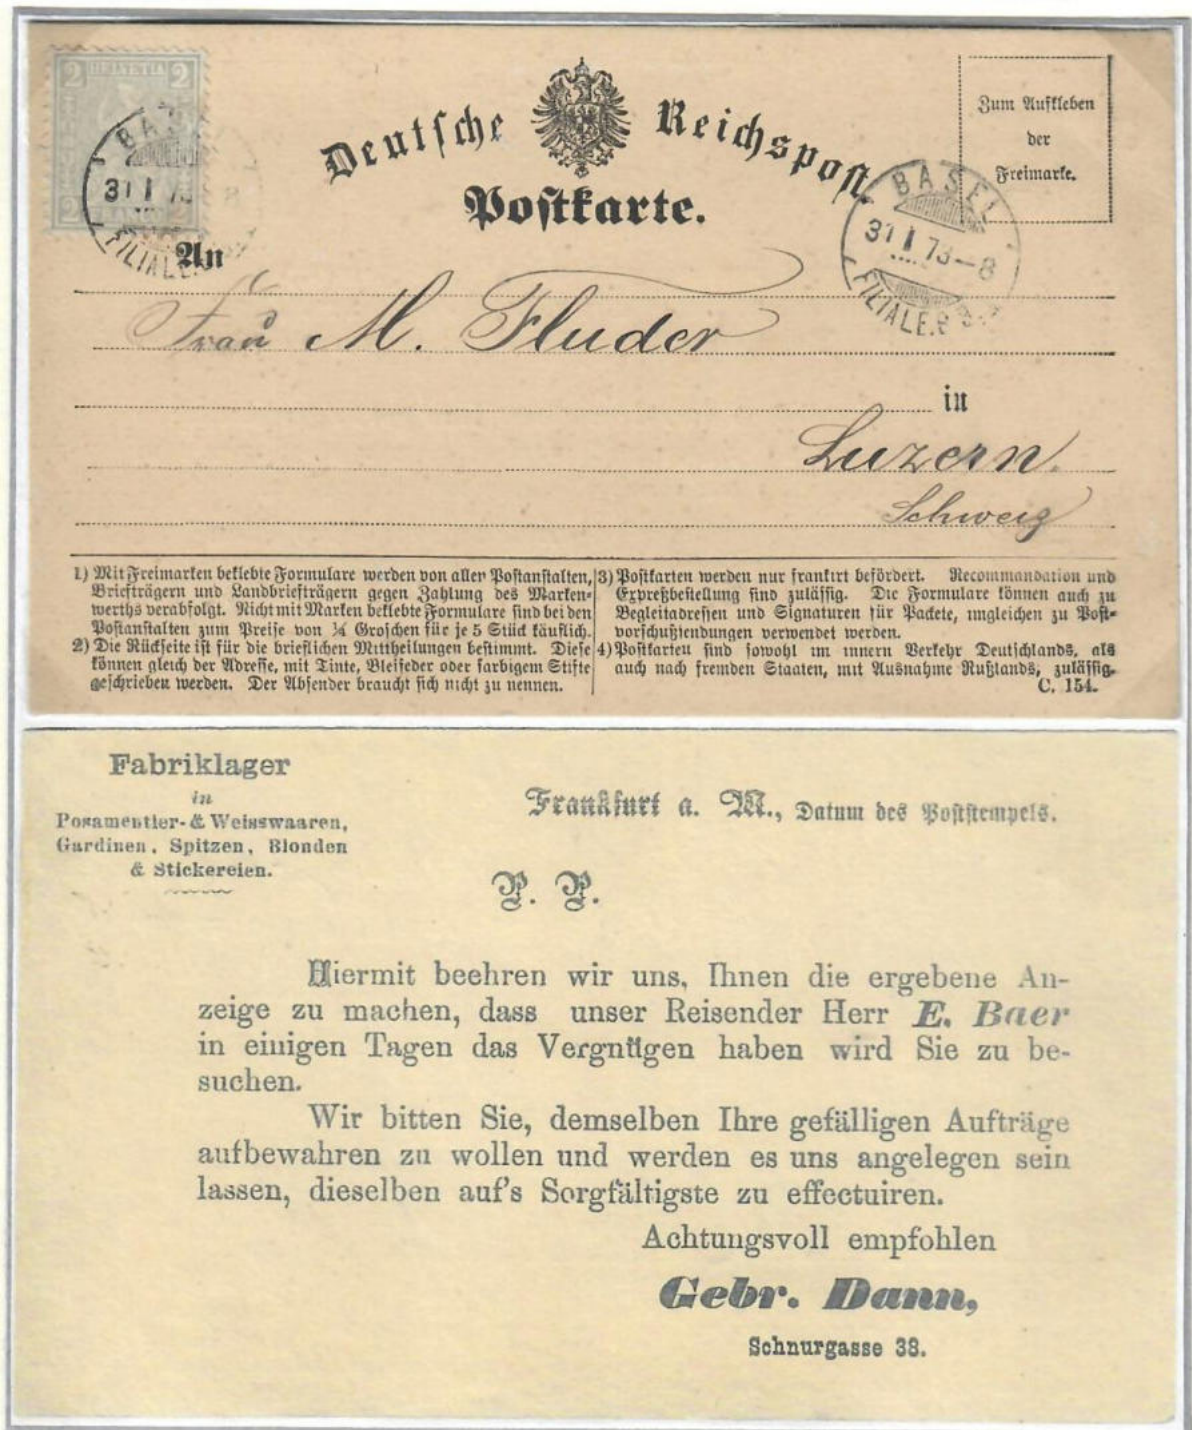 2 HELVETIA 2
Deutsche Reichspost.
Postkarte.
Zum Aufkleben
der
Freimarke.
BASEL
31 I 73
FILIALE
BASEL
31 I 73-8
FILIALE.
An
Frau M. Fluder
in
Luzern.
Schweiz
1) Mit Freimarken beklebte Formulare werden von allen Postanstalten,
Briefträgern und Landbriefträgern gegen Zahlung des Marken-
werths verabfolgt. Nicht mit Marken beklebte Formulare sind bei den
Postanstalten zum Preise von ¼ Groschen für je 5 Stück käuflich.
2) Die Rückseite ist für die brieflichen Mittheilungen bestimmt. Diese
können gleich der Adresse, mit Tinte, Bleifeder oder farbigem Stifte
geschrieben werden. Der Absender braucht sich nicht zu nennen.
3) Postkarten werden nur frankirt befördert. Recommandation und
Expreßbestellung sind zulässig. Die Formulare können auch zu
Begleitadressen und Signaturen für Packete, imgleichen zu Post-
vorschußsendungen verwendet werden.
4) Postkarten sind sowohl im innern Verkehr Deutschlands, als
auch nach fremden Staaten, mit Ausnahme Rußlands, zulässig.
C. 154.
Fabriklager
in
Posamentier- & Weisswaaren,
Gardinen, Spitzen, Blonden
& Stickereien.
Frankfurt a. M., Datum des Poststempels.
P. P.
Hiermit beehren wir uns, Ihnen die ergebene An-
zeige zu machen, dass unser Reisender Herr E. Baer
in einigen Tagen das Vergnügen haben wird Sie zu be-
suchen.
Wir bitten Sie, demselben Ihre gefälligen Aufträge
aufbewahren zu wollen und werden es uns angelegen sein
lassen, dieselben auf's Sorgfältigste zu effectuiren.
Achtungsvoll empfohlen
Gebr. Dann,
Schnurgasse 38.